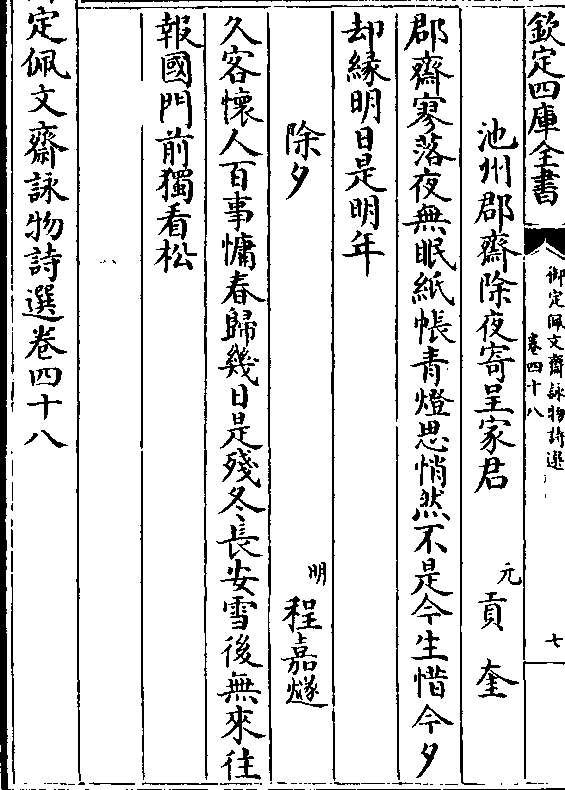 欽定四庫全書
御定佩文齋詠物詩選
卷四十八
七
池州郡齋除夜寄呈家君 元 貢奎
郡齋寥落夜無眠紙帳青燈思悄然不是今生惜今夕
却緣明日是明年
除夕 明 程嘉燧
久客懷人百事慵春歸幾日是殘冬長安雪後無來往
報國門前獨看松
定佩文齋詠物詩選卷四十八